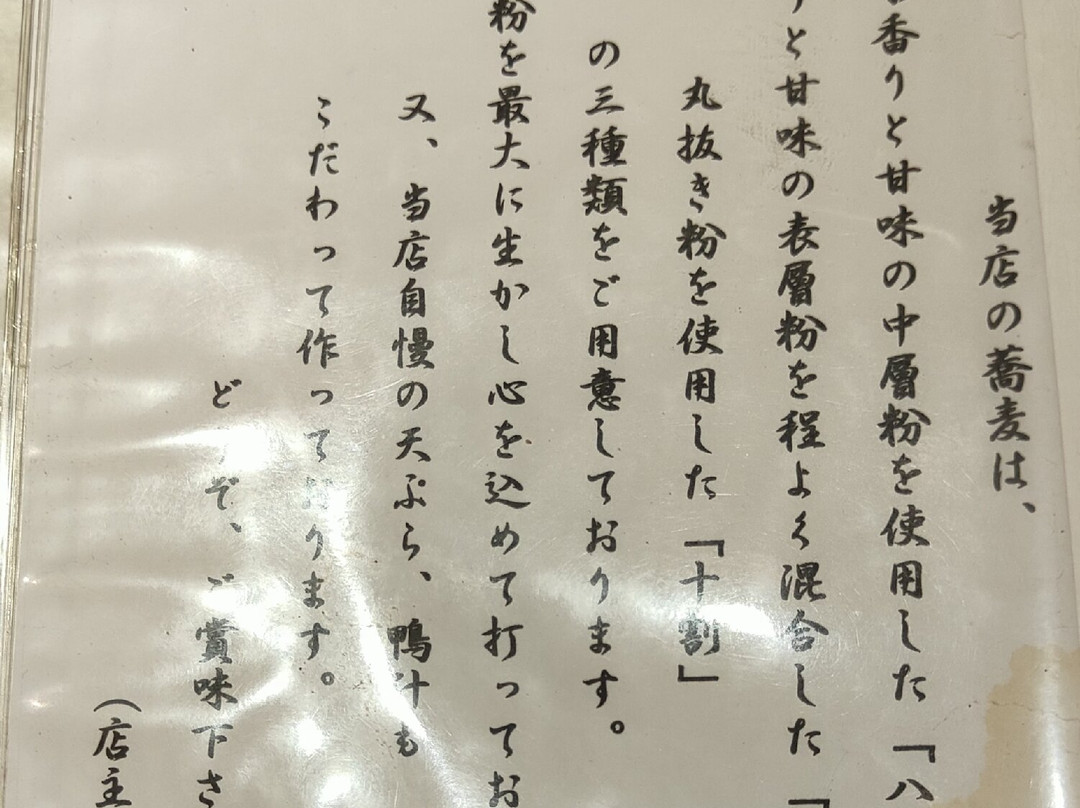 当店の蕎麦は、
香りと甘味の中層粉を使用した「八
と甘味の表層粉を程よく混合した「
丸抜き粉を使用した「十割」
の三種類をご用意しております。
粉を最大に生かし心を込めて打ってお
又、当店自慢の天ぷら、鴨汁も
こだわって作っております。
どうぞ、ご賞味下さ
(店主